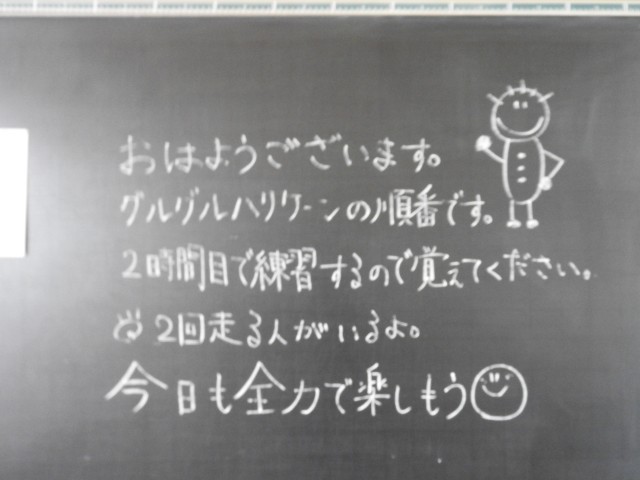 おはようございます。
グルグルハリケーンの順番です。
2時間目で練習するので覚えてください。
2回走る人がいるよ。
今日も全力で楽しもう